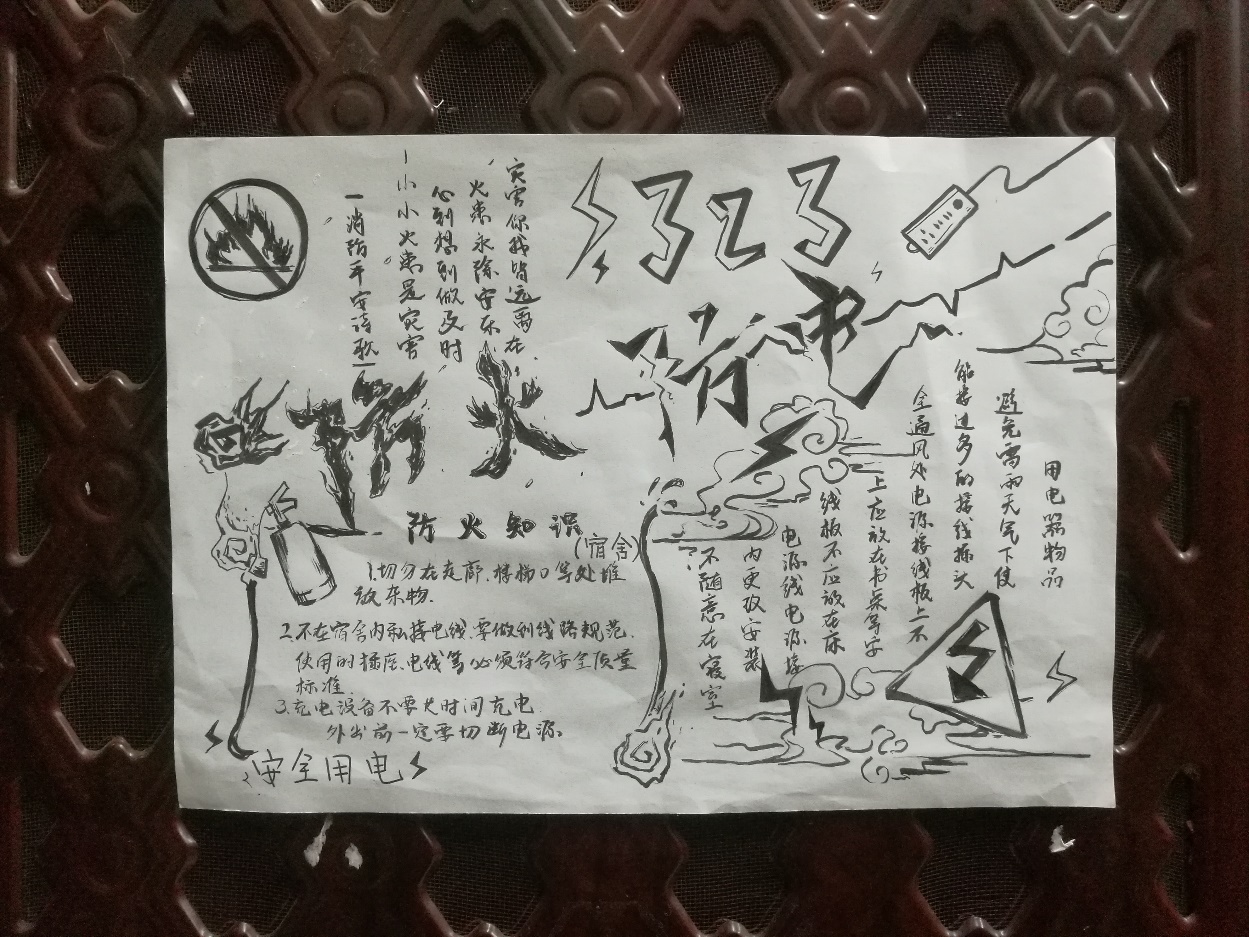 一消防平安诗歌一
小小火患是灾害
心到想到做及时
火患永除安乐
灾害你我皆远离在
323
防电
防火
防火知识
(宿舍)
1.切勿在走廊、楼梯口等处堆
放杂物.
2.不在宿舍内私接电线.要做到线路规范.
使用的插座、电线等必须符合安全质量
标准.
3.充电设备不要长时间充电.
外出前一定要切断电源.
安全用电
不随意在寝室
内更改安装
电源线电源接
线板不应放在床
上应放在书桌等安
全通风处电源接线板上不
能接过多的接线插头
避免雷雨天气下使
用电器物品